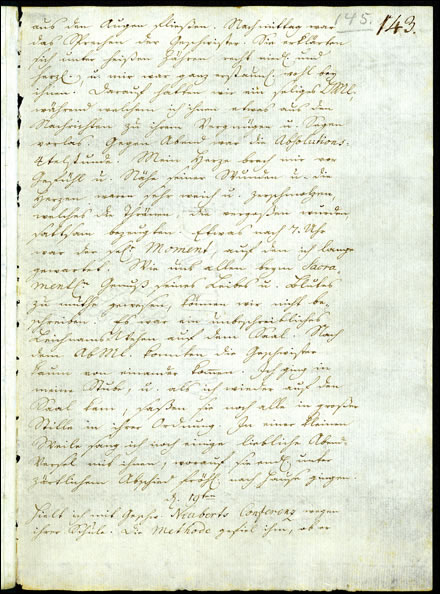 145. 143.
aus den Augen fließen. Nachmittag war
das Sprechen der Geschwister. Sie erklärten
sich unter heißen Thränen recht und
herzl. u. mir war ganz erstaunl. wohl bey
ihnen. Darauf hatten wir ein seliges LMl.
während welchem ich ihnen etwas aus den
Nachrichten zu ihrem Vergnügen u. Segen
vorlas. Gegen Abend war die Absolutions-
4telstund. Mein Herze brach mir vor
Gefühl u. Nähe seiner Wunden u. die
Herzen waren sehr weich u. zerschmolzen,
welches die Thränen, die vergoßen wurden
sattsam bezeugten. Etwas nach 7. Uhr
war der sel. Moment, auf den ich lange
gewartet. Wie uns allen beym Sacra-
mentl. Genuß seines Leibes u. Blutes
zu muthe gewesen, können wir nicht be-
schreiben. Es war ein unbeschreibliches
auf dem Saal. Nach
dem AbMl. konnten die Geschwister
kaum von einander kommen. Ich ging in
meine Stube, u. als ich wieder auf den
Saal kam, saßen sie noch alle in großer
Stille in ihrer Ordnung. In einer kleinen
Weile sang ich noch einige liebliche Abend-
Verse mit ihnen, worauf sie endl. unter
zärtlichem Abschied fröhl. nach Hause gingen.
d. 19ten
hielt ich mit Geschw. Neuberts Conferenz wegen
ihrer Schule. Die Methode gefiel ihm, aber